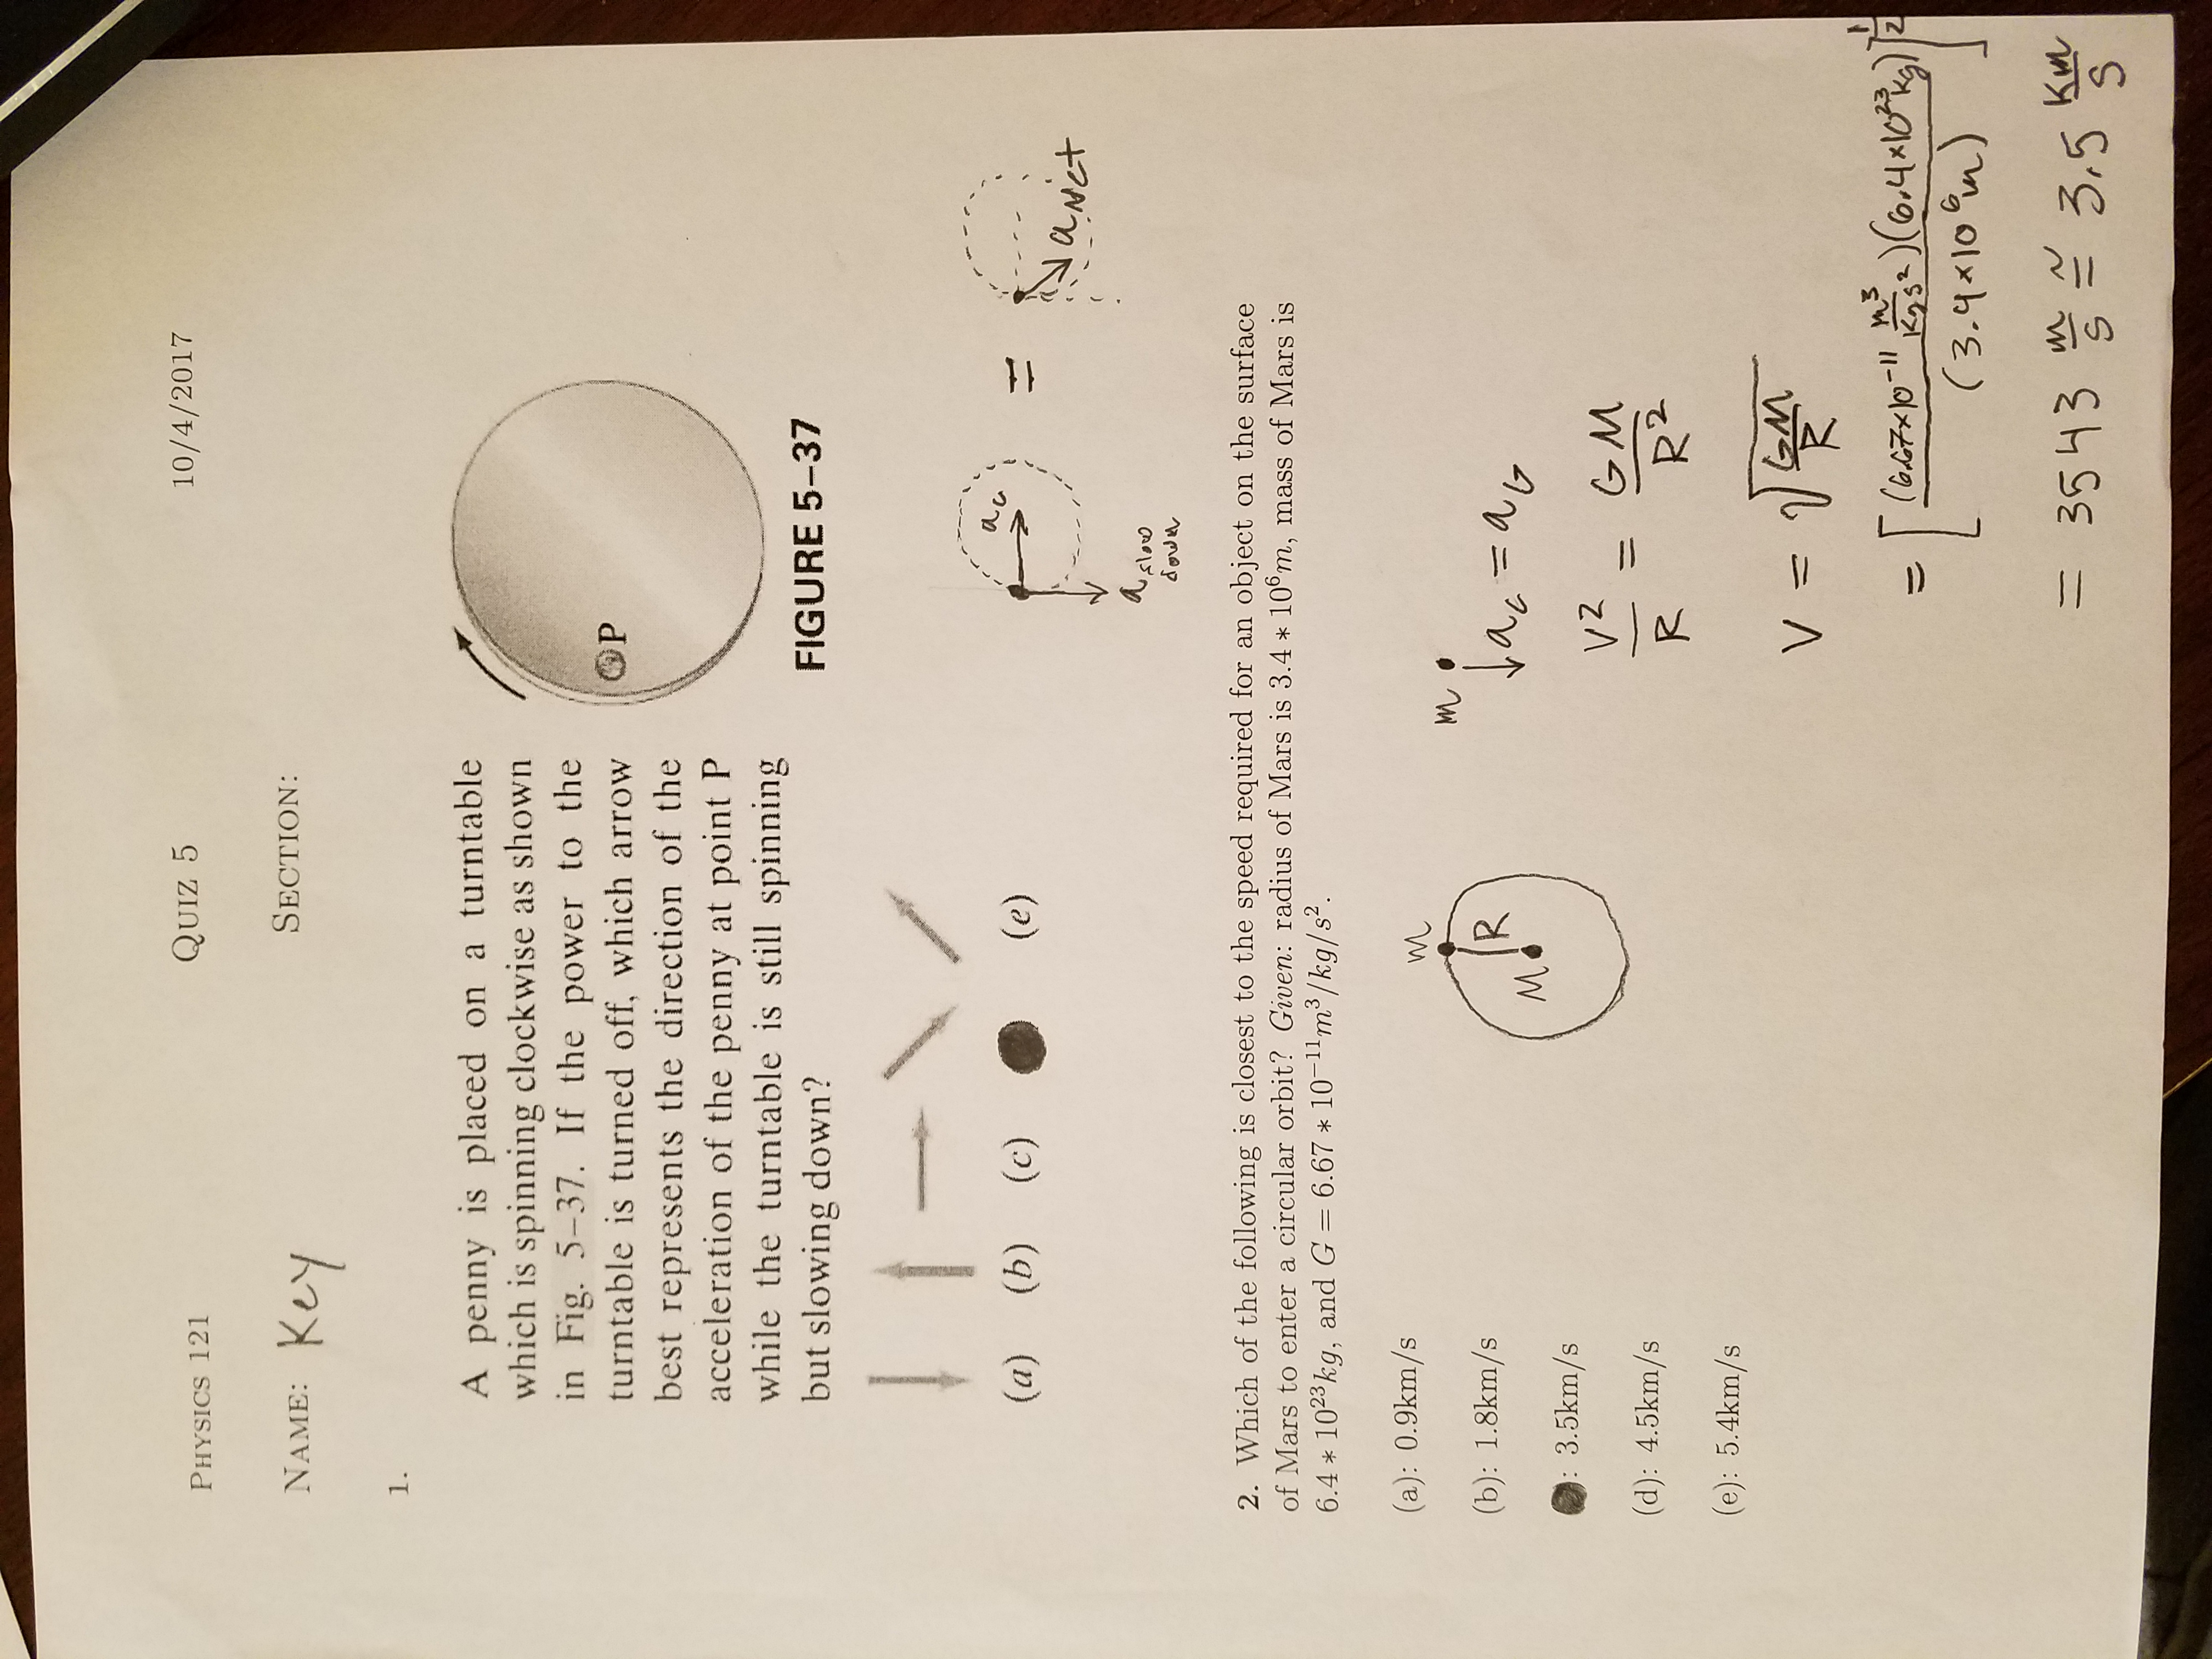 PHYSICS 121 QUIZ 5 10/4/2017
NAME: Key SECTION:
1.
A penny is placed on a turntable
which is spinning clockwise as shown
in Fig. 5–37. If the power to the
turntable is turned off, which arrow
best represents the direction of the
acceleration of the penny at point P
while the turntable is still spinning
but slowing down?
P
FIGURE 5–37
(a) (b) (c) (e)
a_c
=
a_Net
a_slow
down
2. Which of the following is closest to the speed required for an object on the surface
of Mars to enter a circular orbit? Given: radius of Mars is 3.4 * 10⁶m, mass of Mars is
6.4 * 10²³kg, and G = 6.67 * 10⁻¹¹m³/kg/s².
(a): 0.9km/s
(b): 1.8km/s
: 3.5km/s
(d): 4.5km/s
(e): 5.4km/s
m
R
M
m
a_c = a_G
V²/R = GM/R²
V = √(GM/R)
= [(6.67×10⁻¹¹ m³/kgs²)(6.4×10²³kg)/(3.4×10⁶m)]^1/2
= 3543 m/s ≅ 3.5 Km/s